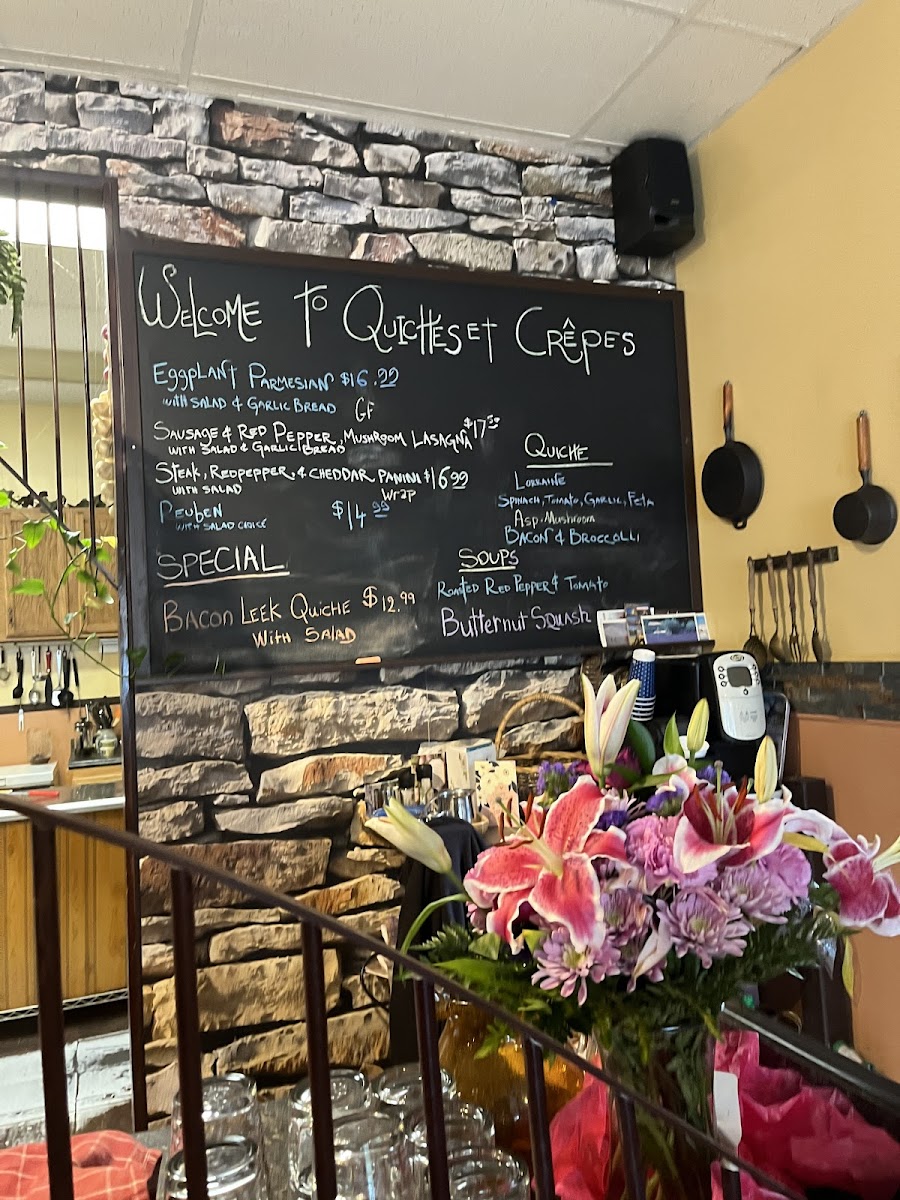 Welcome To Quiches et Crêpes
Eggplant Parmesian $16.99
with Salad & Garlic Bread GF
Sausage & Red Pepper, Mushroom Lasagna $17.50
with Salad & Garlic Bread
Steak, Redpepper, & Cheddar Panini $16.99
with Salad Wrap
Reuben $14.99
with Salad Choice
Special
Bacon Leek Quiche $12.99
With Salad
Quiche
Lorraine
Spinach, Tomato, Garlic, Feta
Asp-Mushroom
Bacon & Broccolli
Soups
Roasted Red Pepper & Tomato
Butternut Squash